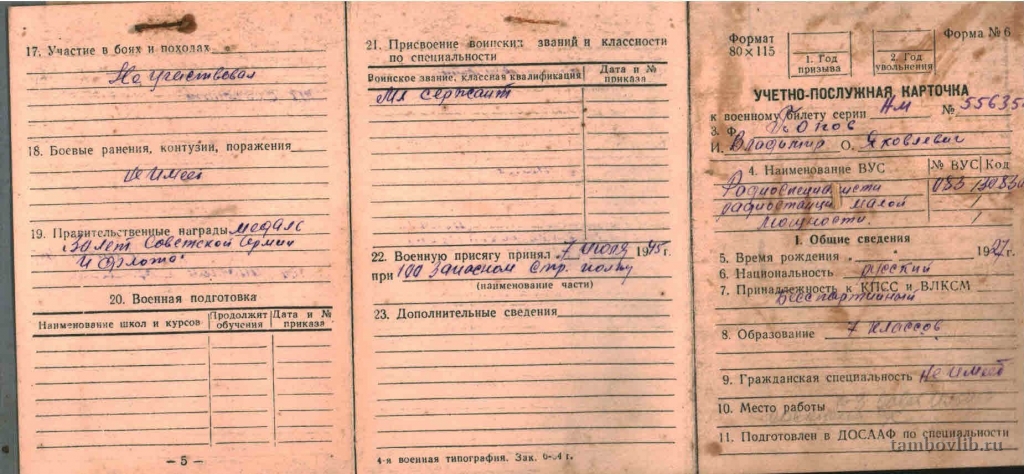 17. Участие в боях и походах
Не участвовал
18. Боевые ранения, контузии, поражения
не имеет
19. Правительственные награды медаль
30 лет Советской Армии
и Флота
20. Военная подготовка
Наименование школ и курсов
Продолжит обучения
Дата и № приказа
- 5 -
21. Присвоение воинских званий и классности
по специальности
Воинское звание, классная квалификация
Дата и № приказа
Мл сержант
22. Военную присягу принял 7 1945г.
при 100 Запасном стр. полку
(наименование части)
23. Дополнительные сведения
4-я военная типография. Зак.
Формат
80×115
1. Год
призыва
2. Год
увольнения
Форма № 6
УЧЕТНО-ПОСЛУЖНАЯ КАРТОЧКА
к военному билету серии НМ №
3. Ф.
И. Владимир О. Яковлевич
4. Наименование ВУС
№ ВУС
Код
Радиоспециалисты
радиостанций малой
мощности
083
I. Общие сведения
5. Время рождения 1927г.
6. Национальность русский
7. Принадлежность к КПСС и ВЛКСМ
Беспартийный
8. Образование 7 классов
9. Гражданская специальность не имеет
10. Место работы
11. Подготовлен в ДОСААФ по специальности
tambovlib.ru